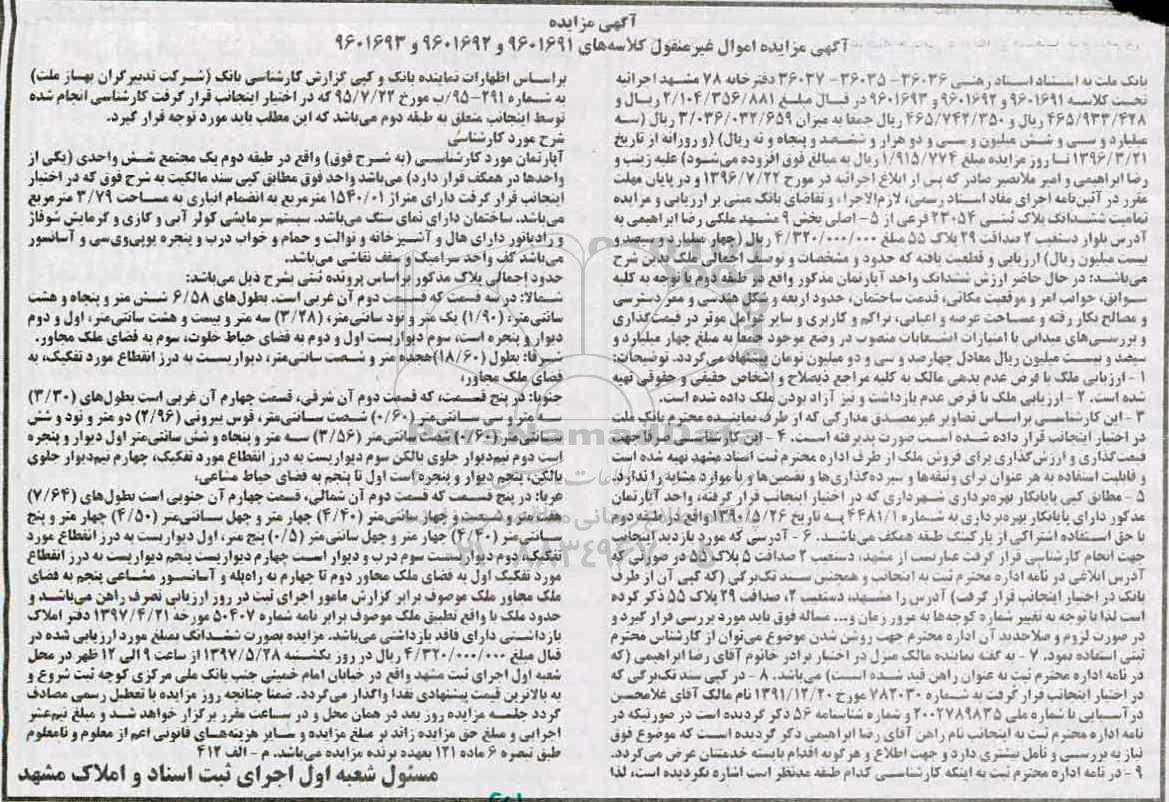 آگهی مزایده
آگهی مزایده اموال غیرمنقول کلاسه‌های ۹۶۰۱۶۹۱ و ۹۶۰۱۶۹۲ و ۹۶۰۱۶۹۳
بانک ملت به استناد اسناد رهنی ۳۶۰۳۶- ۳۶۰۳۵- ۳۶۰۳۷ دفترخانه ۷۸ مشهد اجرائیه
تحت کلاسه ۹۶۰۱۶۹۱ و ۹۶۰۱۶۹۲ و ۹۶۰۱۶۹۳ در قبال مبلغ ۲/۱۰۴/۳۵۶/۸۸۱ ریال و
۴۶۵/۹۳۳/۴۲۸ ریال و ۴۶۵/۷۴۲/۳۵۰ ریال جمعا به میزان ۳/۰۳۶/۰۳۲/۶۵۹ ریال (سه
میلیارد و سی و شش میلیون و سی و دو هزار و ششصد و پنجاه و نه ریال) (و روزانه از تاریخ
۱۳۹۶/۳/۲۱ تا روز مزایده مبلغ ۱/۹۱۵/۷۷۴ ریال به مبالغ فوق افزوده می‌شود) علیه زینب و
رضا ابراهیمی و امیر ملانصیر صادر که پس از ابلاغ اجرائیه در مورخ ۱۳۹۶/۷/۲۲ و در پایان مهلت
مقرر در آئین‌نامه اجرای مفاد اسناد رسمی، لازم‌الاجراء و تقاضای بانک مبنی بر ارزیابی و مزایده
تمامیت ششدانگ پلاک ثبتی ۲۳۰۵۴ فرعی از ۵- اصلی بخش ۹ مشهد ملکی رضا ابراهیمی به
آدرس بلوار دستغیب ۲ صداقت ۲۹ پلاک ۵۵ مبلغ ۴/۳۲۰/۰۰۰/۰۰۰ ریال (چهار میلیارد و سیصد و
بیست میلیون ریال) ارزیابی و قطعیت یافته که حدود و مشخصات و توصیف اجمالی ملک بدین شرح
می‌باشد: در حال حاضر ارزش ششدانگ واحد آپارتمان مذکور واقع در طبقه دوم با توجه به کلیه
سوابق، جوانب امر و موقعیت مکانی، قدمت ساختمان، حدود اربعه و شکل هندسی و معبر دسترسی
و مصالح بکار رفته و مساحت عرصه و اعیانی، تراکم و کاربری و سایر عوامل موثر در قیمت‌گذاری
و بررسی‌های میدانی با امتیازات انشعابات منصوب در وضع موجود جمعا به مبلغ چهار میلیارد و
سیصد و بیست میلیون ریال معادل چهارصد و سی و دو میلیون تومان پیشنهاد می‌گردد. توضیحات:
۱ - ارزیابی ملک با فرض عدم بدهی مالک به کلیه مراجع ذیصلاح و اشخاص حقیقی و حقوقی تهیه
شده است. ۲ - ارزیابی ملک با فرض عدم بازداشت و نیز آزاد بودن ملک داده شده است.
۳ - این کارشناسی براساس تصاویر غیرمصدق مدارکی که از طرف نماینده محترم بانک ملت
در اختیار اینجانب قرار داده شده است صورت پذیرفته است. ۴ - این کارشناسی صرفا جهت
قیمت‌گذاری و ارزش‌گذاری برای فروش ملک از طرف اداره محترم ثبت اسناد مشهد تهیه شده است
و قابلیت استفاده به هر عنوان برای وثیقه‌ها و سپرده‌گذاری‌ها و تضمین‌ها و یا موارد مشابه را ندارد.
۵ - مطابق کپی پایانکار بهره‌برداری شهرداری که در اختیار اینجانب قرار گرفته، واحد آپارتمان
مذکور دارای پایانکار بهره‌برداری به شماره ۴۴۸۱/۱ به تاریخ ۱۳۹۰/۵/۲۶ واقع در طبقه دوم
با حق استفاده اشتراکی از پارکینگ طبقه همکف می‌باشد. ۶ - آدرسی که مورد بازدید اینجانب
جهت انجام کارشناسی قرار گرفت عبارتست از مشهد، دستغیب ۲ صداقت ۵ پلاک ۵۵ در صورتی که
آدرس ابلاغی در نامه اداره محترم ثبت به اینجانب و همچنین سند تک‌برگی (که کپی آن از طرف
بانک در اختیار اینجانب قرار گرفت) آدرس را مشهد، دستغیب ۲، صداقت ۲۹ پلاک ۵۵ ذکر کرده
است لذا با توجه به تغییر شماره کوچه‌ها به مرور زمان و... مساله فوق باید مورد بررسی قرار گیرد و
در صورت لزوم و صلاحدید آن اداره محترم جهت روشن شدن موضوع می‌توان از کارشناس محترم
ثبتی استفاده نمود. ۷ - به گفته نماینده مالک منزل در اختیار برادر خانوم آقای رضا ابراهیمی (که
در نامه اداره محترم ثبت به عنوان راهن قید شده است) می‌باشد. ۸ - در کپی سند تک‌برگی که
در اختیار اینجانب قرار گرفت به شماره ۷۸۲۰۳۰ مورخ ۱۳۹۱/۱۲/۲۰ نام مالک آقای غلامحسین
درآسیابی با شماره ملی ۲۰۰۲۷۸۹۸۳۵ و شماره شناسنامه ۵۶ ذکر گردیده است در صورتیکه در
نامه اداره محترم ثبت به اینجانب نام راهن آقای رضا ابراهیمی ذکر گردیده است که موضوع فوق
نیاز به بررسی و تأمل بیشتری دارد و جهت اطلاع و هرگونه اقدام بایسته خدمتتان عرض می‌گردد.
۹ - در نامه اداره محترم ثبت به اینکه کارشناسی کدام طبقه مدنظر است اشاره نگردیده است، لذا
براساس اظهارات نماینده بانک و کپی گزارش کارشناسی بانک (شرکت تدبیرگران بهساز ملت)
به شماره ۲۹۱-۹۵/ب مورخ ۹۵/۷/۲۲ که در اختیار اینجانب قرار گرفت کارشناسی انجام شده
توسط اینجانب متعلق به طبقه دوم می‌باشد که این مطلب باید مورد توجه قرار گیرد.
شرح مورد کارشناسی
آپارتمان مورد کارشناسی (به شرح فوق) واقع در طبقه دوم یک مجتمع شش واحدی (یکی از
واحدها در همکف قرار دارد) می‌باشد واحد فوق مطابق کپی سند مالکیت به شرح فوق که در اختیار
اینجانب قرار گرفت دارای متراژ ۱۵۴۰/۰۱ مترمربع به انضمام انباری به مساحت ۳/۷۹ مترمربع
می‌باشد. ساختمان دارای نمای سنگ می‌باشد. سیستم سرمایشی کولر آبی و گازی و گرمایش شوفاژ
و رادیاتور دارای هال و آشپزخانه و توالت و حمام و خواب درب و پنجره یوپی‌وی‌سی و آسانسور
می‌باشد کف واحد سرامیک و سقف نقاشی می‌باشد.
حدود اجمالی پلاک مذکور براساس پرونده ثبتی بشرح ذیل می‌باشد:
شمالا: در سه قسمت که قسمت دوم آن غربی است. بطول‌های ۶/۵۸ شش متر و پنجاه و هشت
سانتی‌متر، (۱/۹۰) یک متر و نود سانتی‌متر، (۳/۲۸) سه متر و بیست و هشت سانتی‌متر، اول و دوم
دیوار و پنجره است، سوم دیواریست اول و دوم به فضای حیاط خلوت، سوم به فضای ملک مجاور.
شرقا: بطول (۱۸/۶۰) هجده متر و شصت سانتی‌متر، دیواریست به درز انقطاع مورد تفکیک، به
فضای ملک مجاور.
جنوبا: در پنج قسمت، که قسمت دوم آن شرقی، قسمت چهارم آن غربی است بطول‌های (۳/۳۰)
سه متر و سی سانتی‌متر (۰/۶۰) شصت سانتی‌متر، قوس بیرونی (۲/۹۶) دو متر و نود و شش
سانتی‌متر (۰/۶۰) شصت سانتی‌متر (۳/۵۶) سه متر و پنجاه و شش سانتی‌متر اول دیوار و پنجره
است دوم نیم‌دیوار جلوی بالکن سوم دیواریست به درز انقطاع مورد تفکیک، چهارم نیم‌دیوار جلوی
بالکن، پنجم دیوار و پنجره است اول تا پنجم به فضای حیاط مشاعی،
غربا: در پنج قسمت که قسمت دوم آن شمالی، قسمت چهارم آن جنوبی است بطول‌های (۷/۶۴)
هفت متر و شصت و چهار سانتی‌متر (۴/۴۰) چهار متر و چهل سانتی‌متر (۴/۵۰) چهار متر و پنج
سانتی‌متر (۴/۴۰) چهار متر و چهل سانتی‌متر (۰/۵) پنج متر، اول دیواریست به درز انقطاع مورد
تفکیک، دوم دیواریست سوم درب و دیوار است چهارم دیواریست پنجم دیواریست به درز انقطاع
مورد تفکیک اول به فضای ملک مجاور دوم تا چهارم به راه‌پله و آسانسور مشاعی پنجم به فضای
ملک مجاور ملک موصوف برابر گزارش مامور اجرای ثبت در روز ارزیابی تصرف راهن می‌باشد و
حدود ملک با واقع تطبیق ملک موصوف برابر نامه شماره ۵۰۴۰۷ مورخه ۱۳۹۷/۴/۲۱ دفتر املاک
بازداشتی دارای فاقد بازداشتی می‌باشد. مزایده بصورت ششدانگ بمبلغ مورد ارزیابی شده در
قبال مبلغ ۴/۳۲۰/۰۰۰/۰۰۰ ریال در روز یکشنبه ۱۳۹۷/۵/۲۸ از ساعت ۹ الی ۱۲ ظهر در محل
شعبه اول اجرای ثبت مشهد واقع در خیابان امام خمینی جنب بانک ملی مرکزی کوچه ثبت شروع و
به بالاترین قیمت پیشنهادی نقدا واگذار می‌گردد. ضمنا چنانچه روز مزایده با تعطیل رسمی مصادف
گردد جلسه مزایده روز بعد در همان محل و در ساعت مقرر برگزار خواهد شد و مبلغ نیم‌عشر
اجرایی و مبلغ حق مزایده زائد بر مبلغ مزایده و سایر هزینه‌های قانونی اعم از معلوم و نامعلوم
طبق تبصره ۶ ماده ۱۲۱ بعهده برنده مزایده می‌باشد. م - الف ۴۱۲
مسئول شعبه اول اجرای ثبت اسناد و املاک مشهد